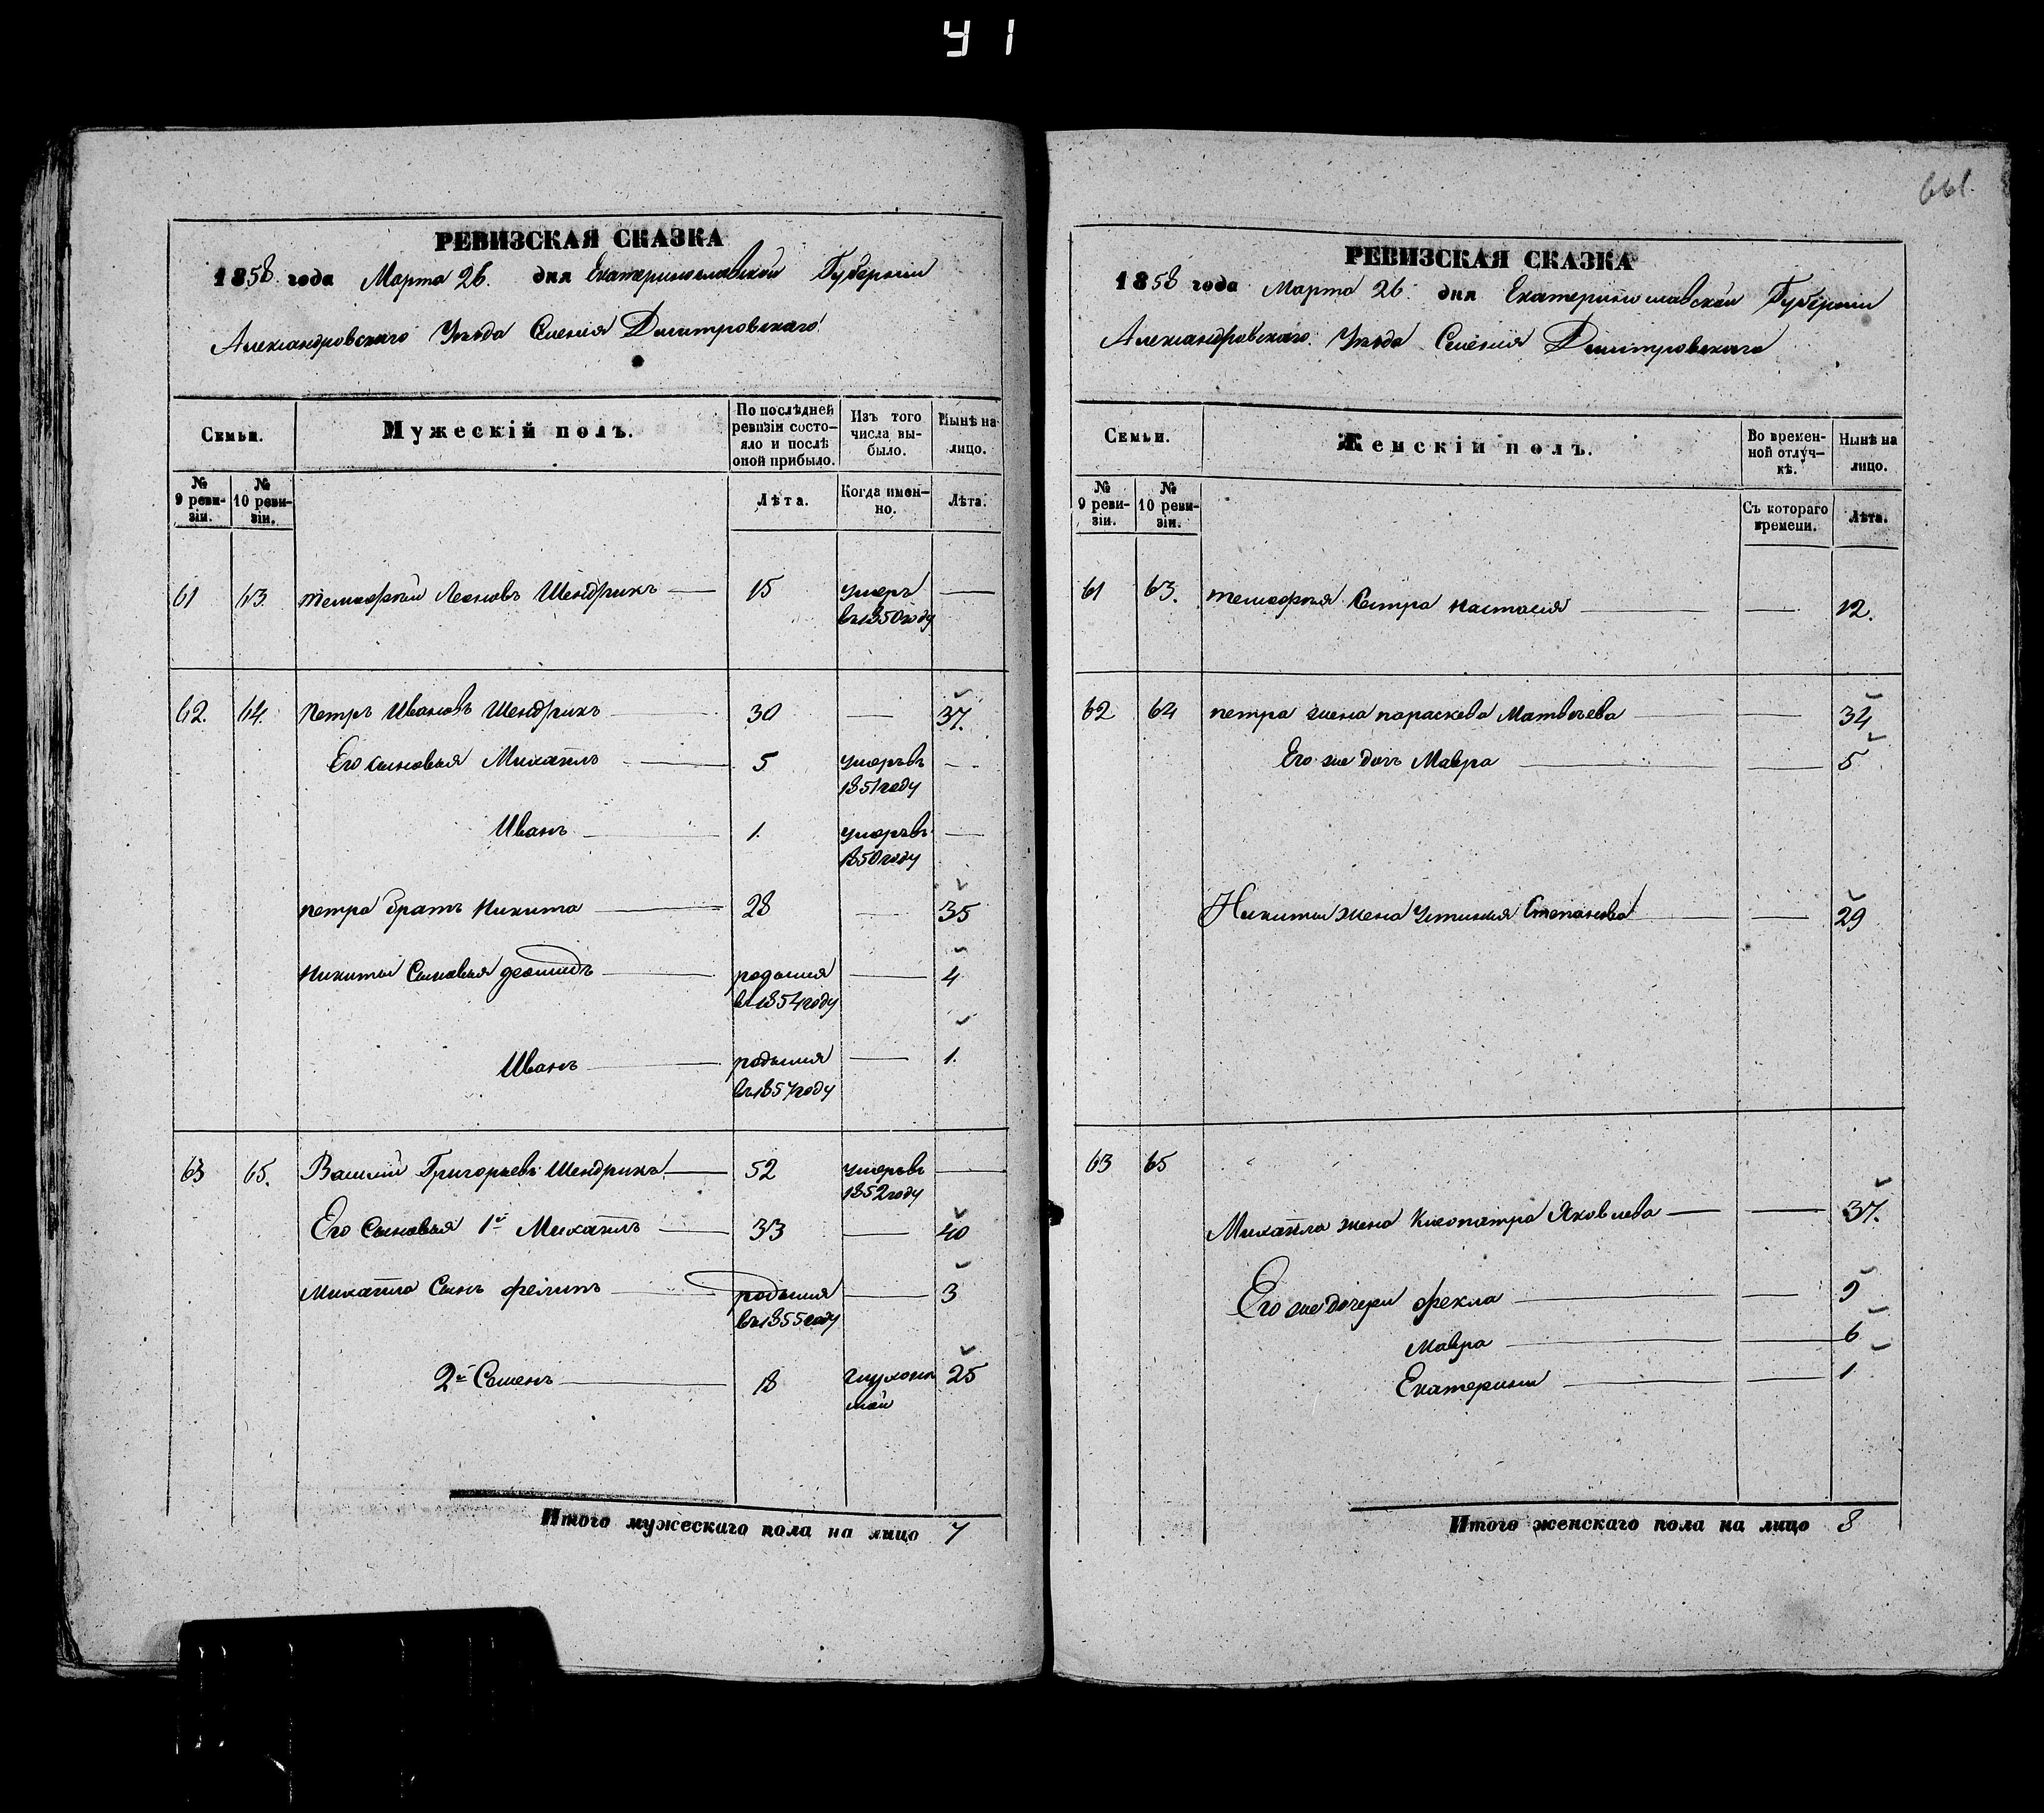 41
661.
РЕВИЗСКАЯ СКАЗКА
1858 года Марта 26. дня Екатеринославской Губернии
Александровского Уезда Селения Дмитровского
Семьи.
Мужескiй полъ.
По послѣдней ревизiи состояло и послѣ оной прибыло.
Изъ того числа выбыло.
Нынѣ на лицо.
№ 9 ревизiи.
№ 10 ревизiи.
Лѣта.
Когда именно.
Лѣта.
61 63. Тимофѣй Леоновъ Шендрикъ — 15 умеръ —
въ 1850 году
62. 64. Петръ Ивановъ Шендрикъ — 30 — 37.
Его сыновья Михаилъ — 5 умеръ въ —
1851 году
Иванъ — 1. умеръ въ —
1850 году
Петра братъ Никита — 28 — 35
Никиты Сыновья Леонидъ — родился — 4
въ 1854 году
Иванъ — родился — 1.
въ 1857 году
63 65. Василий Григорьевъ Шендрикъ — 52 умеръ въ —
1852 году
Его Сыновья 1й Михаилъ — 33 — 40
Михаила Сынъ Филипъ — родился — 3
въ 1855 году
2й Семенъ — 18 глухонѣ 25
мой
Итого мужескаго пола на лицо 7
РЕВИЗСКАЯ СКАЗКА
1858 года Марта 26. дня Екатеринославской Губернии
Александровского Уезда Селения Дмитровского
Семьи.
Женскiй полъ.
Во временной отлучкѣ.
Нынѣ на лицо.
№ 9 ревизiи.
№ 10 ревизiи.
Съ котораго времени.
Лѣта.
61 63. Тимофѣя Сестра Настасия — — 12.
62 64 Петра жена Параскева Матвѣева — — 34
Его же дочь Мавра — — 5
Никиты жена Устиния Степанова — — 29
63 65
Михаила жена Клеопатра Яковлева — — 37.
Его же дочери Фекла — — 9
Мавра — — 6
Екатерина — — 1
Итого женскаго пола на лицо 8